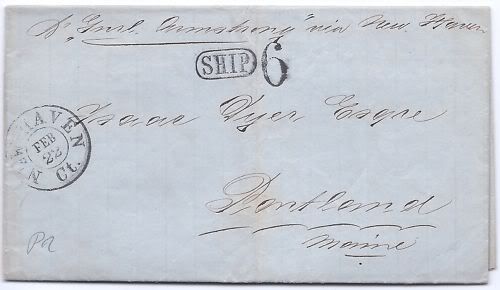 Pr "Genl. Armstrong" via New Haven
SHIP 6
NEW HAVEN
FEB
22
Ct.
Isaac Dyer Esqre
Portland
Maine